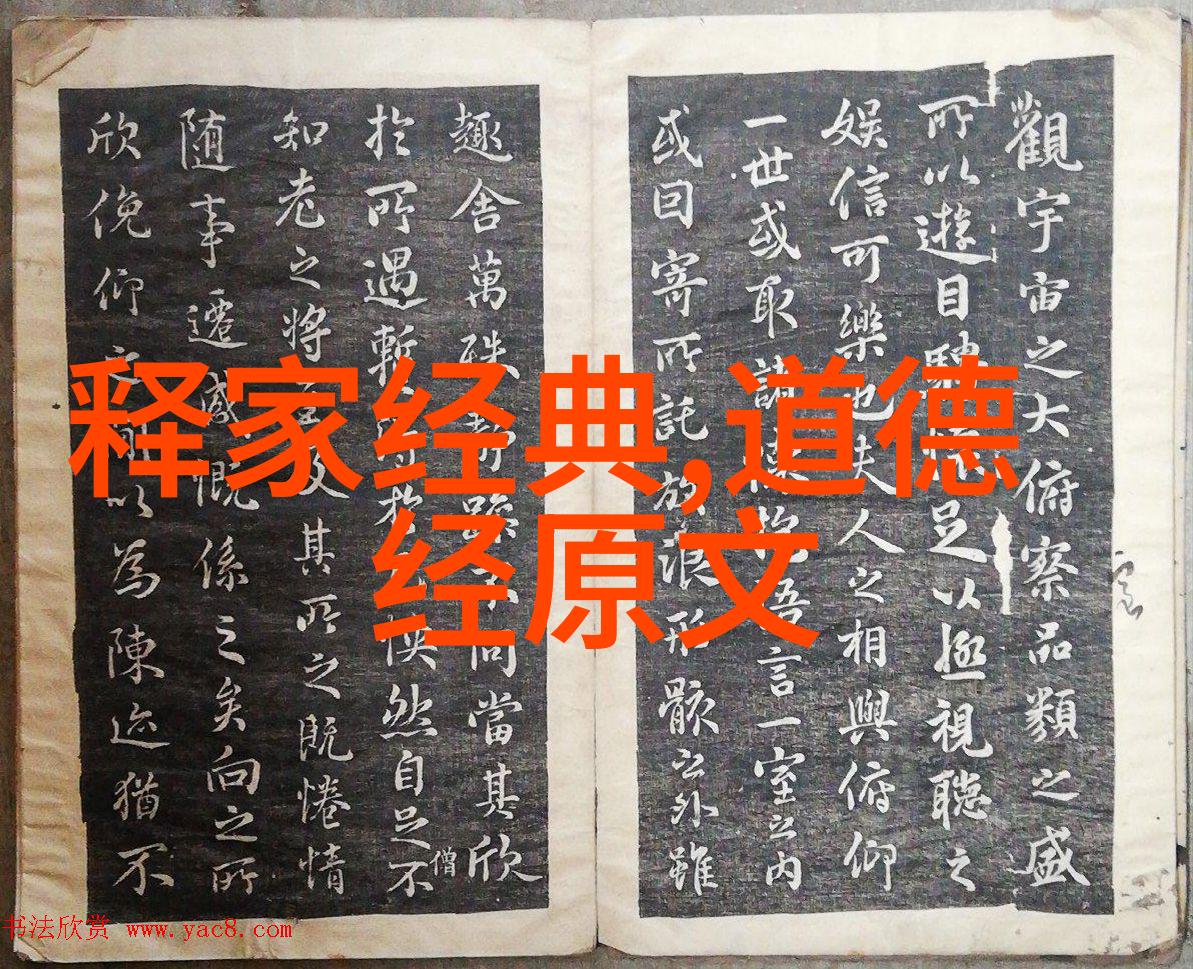 觀宇宙之大俯察品類之盛
所以遊目騁懷足以極視聽之
娱信可樂也夫人之相與俯仰
一世或取諸懷抱吾言一室之内
或因寄所託放浪形骸之外雖
趣舍萬殊靜躁不同當其欣
於所遇暫得於己快然自足不
僧
知老之將至及其所之既惓情
随事遷感慨係之矣向之所
欣俛仰之間以為陳迹猶不
释家经典,道德
经原文
书法欣赏 www.yac8.com